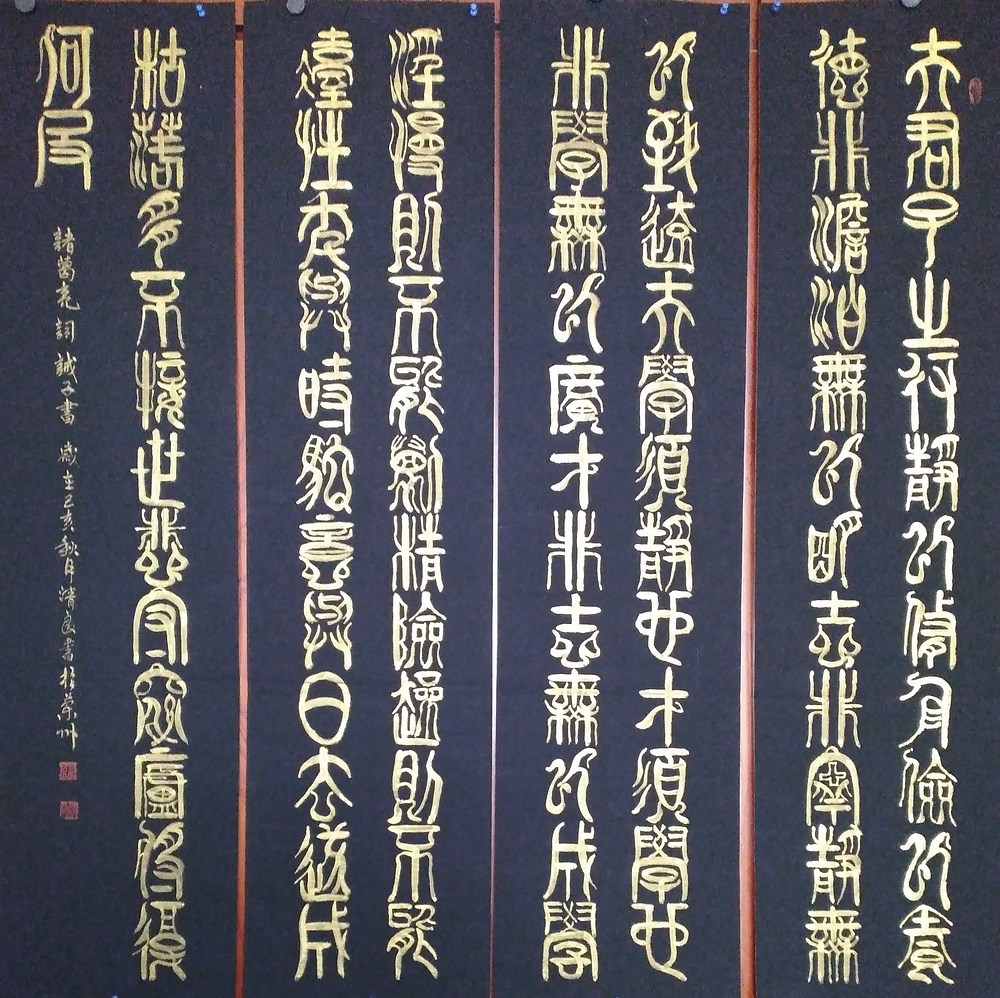 夫君子之行靜以修身儉以養
德非澹泊無以明志非寧靜無
以致遠夫學須靜也才須學也
非學無以廣才非志無以成學
淫慢則不能勵精險躁則不能
臺性年與時馳意與日去遂成
枯落多不接世悲守窮廬將復
何及
諸葛亮詞 誡子書 歲在己亥秋月清良書於